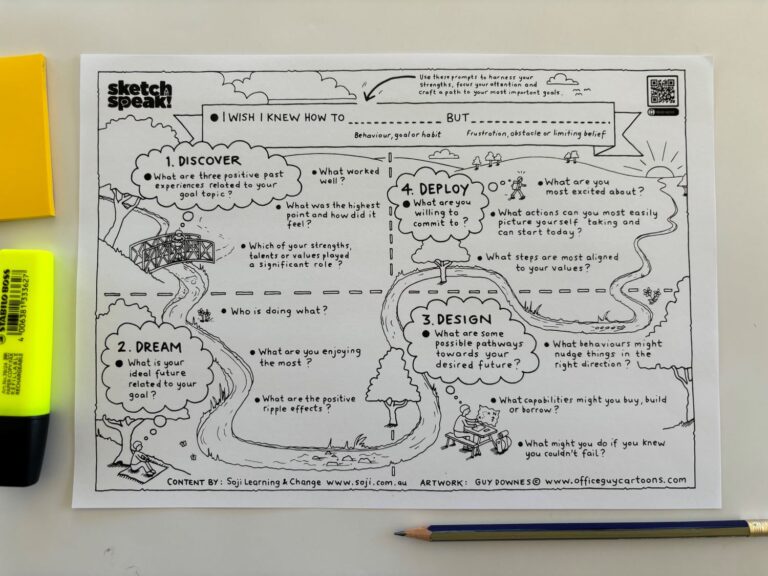 sketch
speak!
Use these prompts to harness your
strengths, focus your attention and
craft a path to your most important goals.
I WISH I KNEW HOW TO _ _ _ _ _ _ _ _ _ _ BUT _ _ _ _ _ _ _ _ _ _ _ _
Behaviour, goal or habit
Frustration, obstacle or limiting belief
1. DISCOVER
What are three positive past
experiences related to your
goal topic?
What worked
well?
What was the highest
point and how did it
feel?
Which of your strengths,
talents or values played
a significant role?
2. DREAM
What is your
ideal future
related to your
goal?
Who is doing what?
What are you enjoying
the most?
What are the positive
ripple effects?
3. DESIGN
What are some
possible pathways
towards your
desired future?
What behaviours might
nudge things in the
right direction?
What capabilities might you buy, build
or borrow?
What might you do if you knew
you couldn't fail?
4. DEPLOY
What are you
willing to
commit to?
What are you
most excited about?
What actions can you most easily
picture yourself taking and
can start today?
What steps are most aligned
to your values?
CONTENT BY: Soji Learning & Change www.soji.com.au ARTWORK: GUY DOWNES © www.officeguycartoons.com
STABILO BOSS
4006381333627